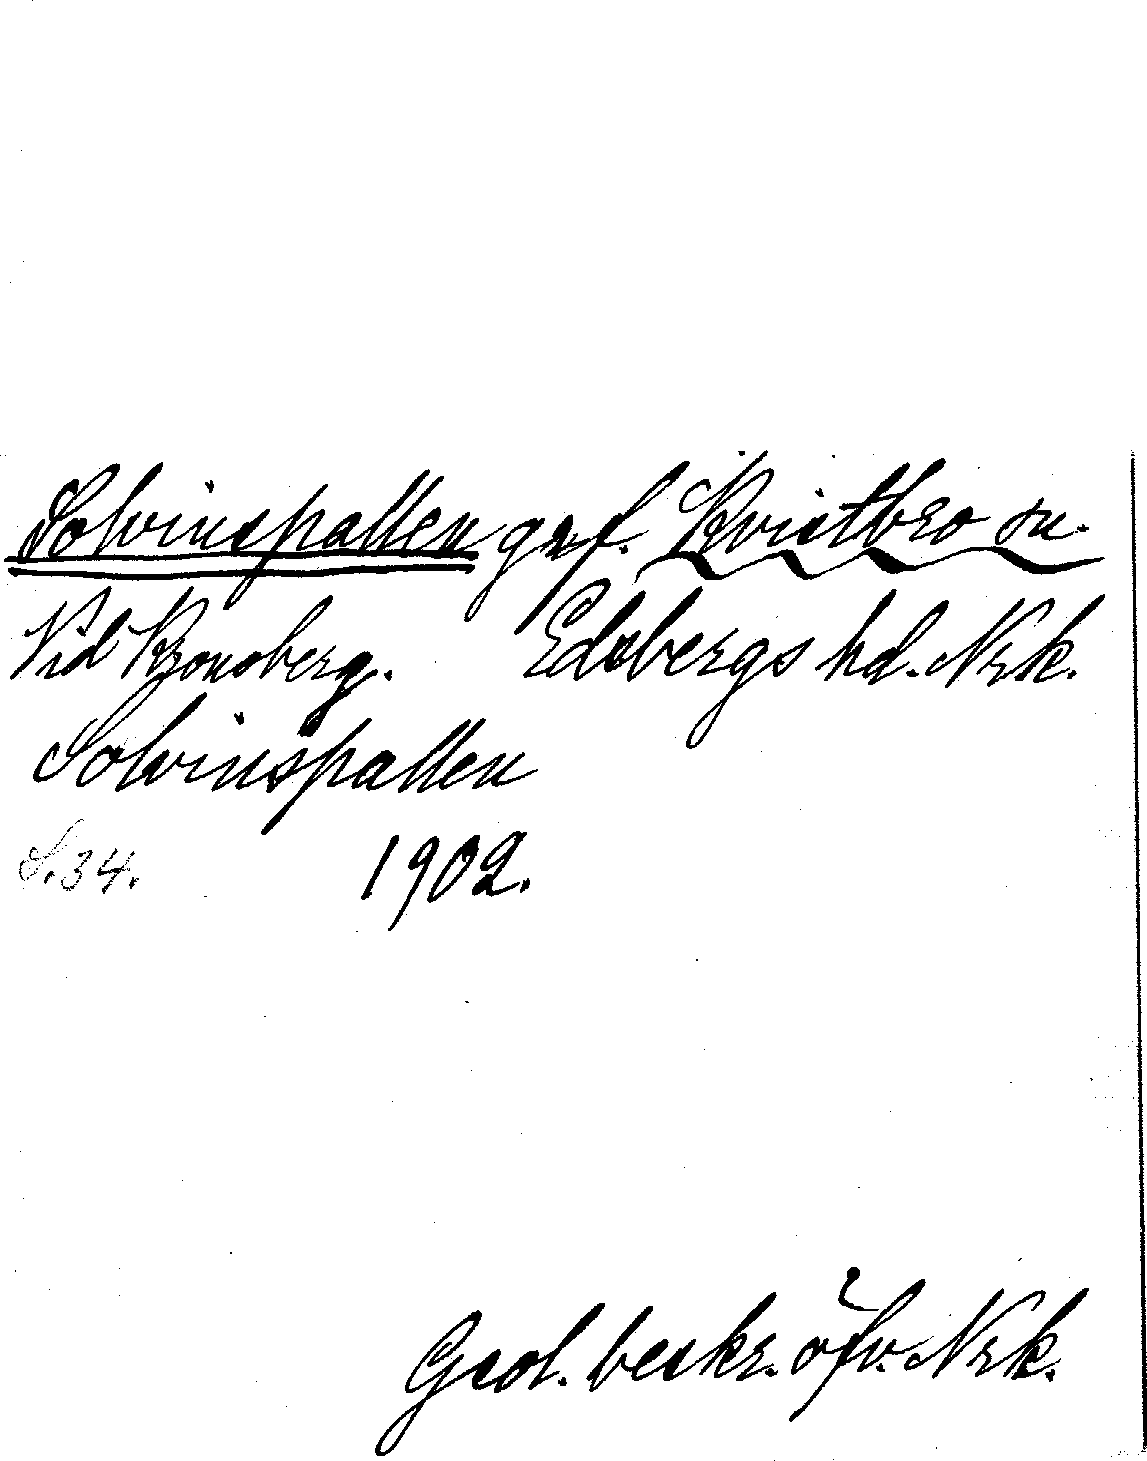 Solvinspallen gruf. Kvistbro sn.
Vid Kronoberg. Edsbergs hd. Nrk.
Solvinspallen
S. 34. 1902.
Geol. beskr. öfv. Nrk.